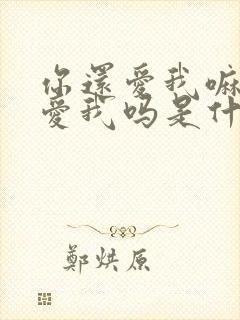 你還愛我嘛
愛我吗是什
鄭烘原